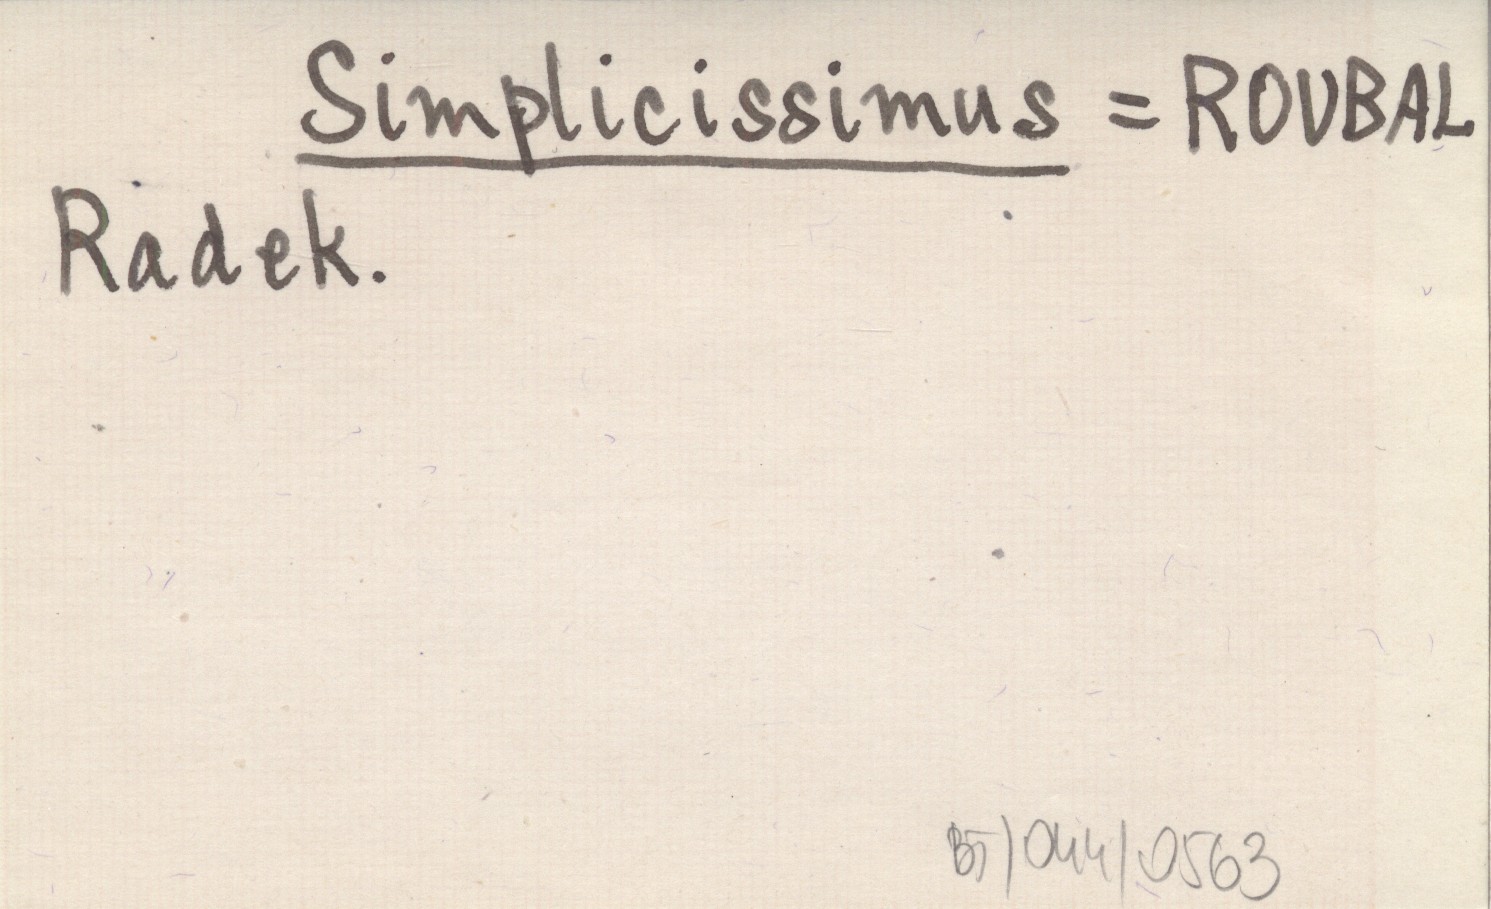 Simplicissimus = ROUBAL
Radek.
BJ/044/0563